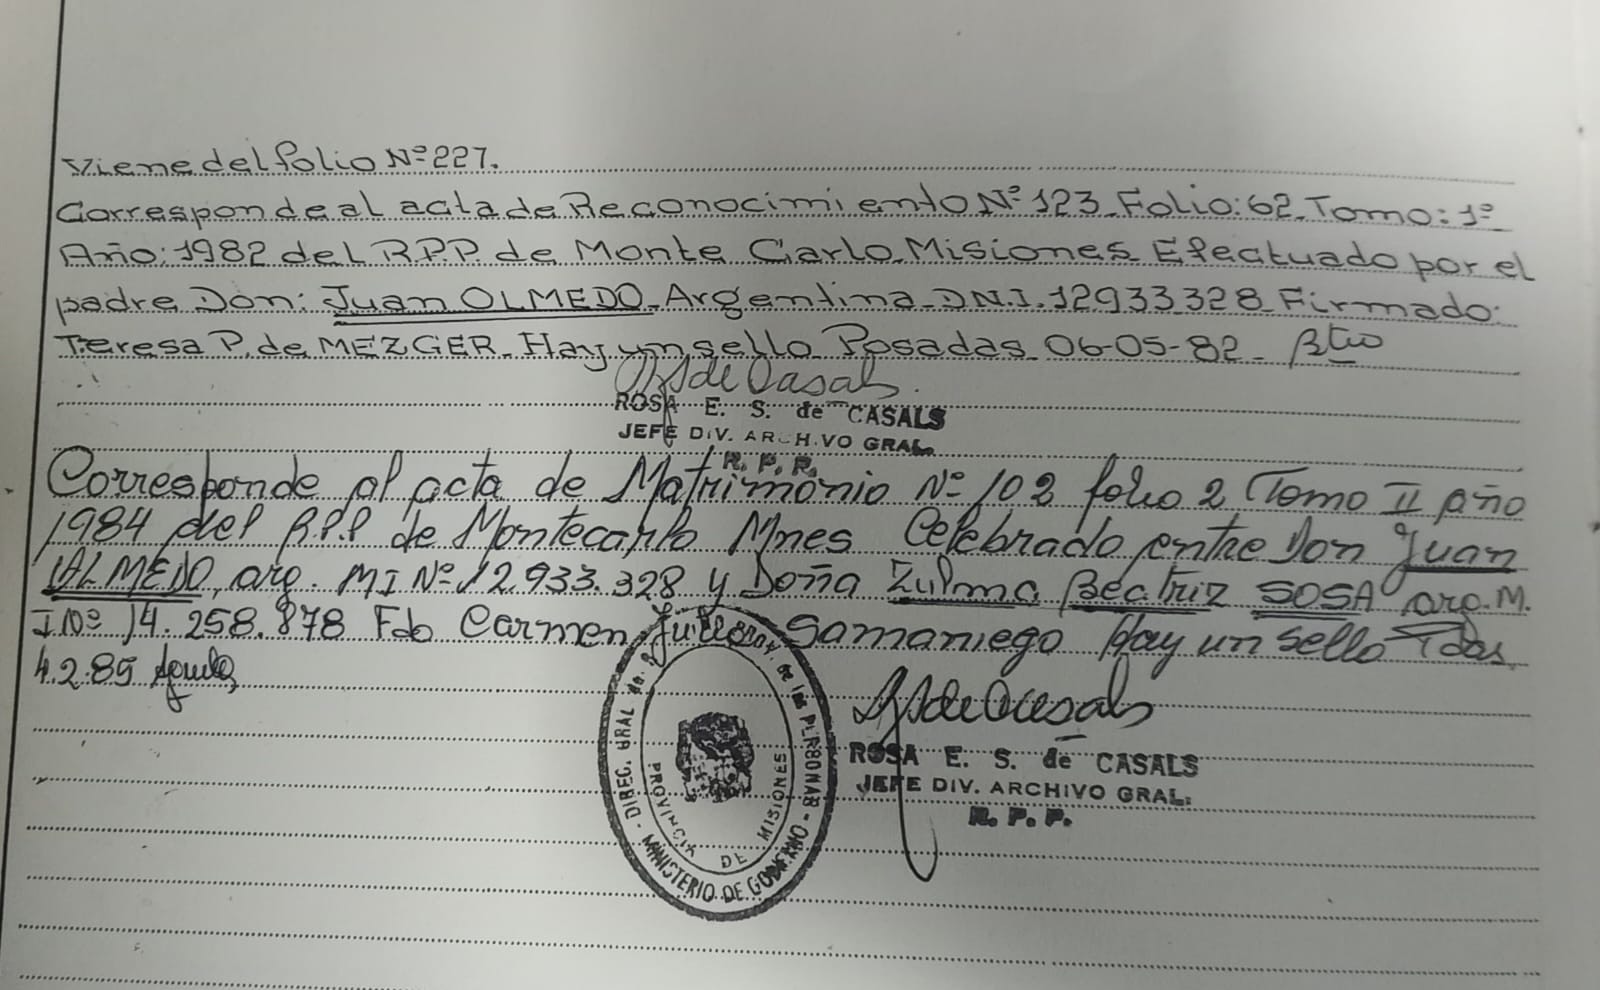 Viene del folio Nº 227.
Corresponde al acta de Reconocimiento Nº 123. Folio: 62. Tomo: 1º
Año: 1982 del R.P.P. de Monte Carlo. Misiones Efectuado por el
padre Don: Juan OLMEDO. Argentina. D.N.I. 12933328. Firmado:
Teresa P. de MEZGER. Hay un sello. Posadas. 06-05-82.
ROSA E. S. de CASALS
JEFE DIV. ARCHIVO GRAL.
R. P. P.
Corresponde al acta de Matrimonio Nº 102 folio 2 Tomo II año
1984 del R.P.P de Montecarlo Mnes Celebrado entre Don Juan
OLMEDO, arg. MI Nº 12.933.328 y Doña Zulma Beatriz SOSA arg. M.
I Nº 14.258.878 Fdo Carmen Samaniego Hay un sello Pdas
4.2.85
DIREC. GRAL de las PERSONAS - MINISTERIO DE GOBIERNO -
PROVINCIA DE MISIONES
ROSA E. S. de CASALS
JEFE DIV. ARCHIVO GRAL.
R. P. P.